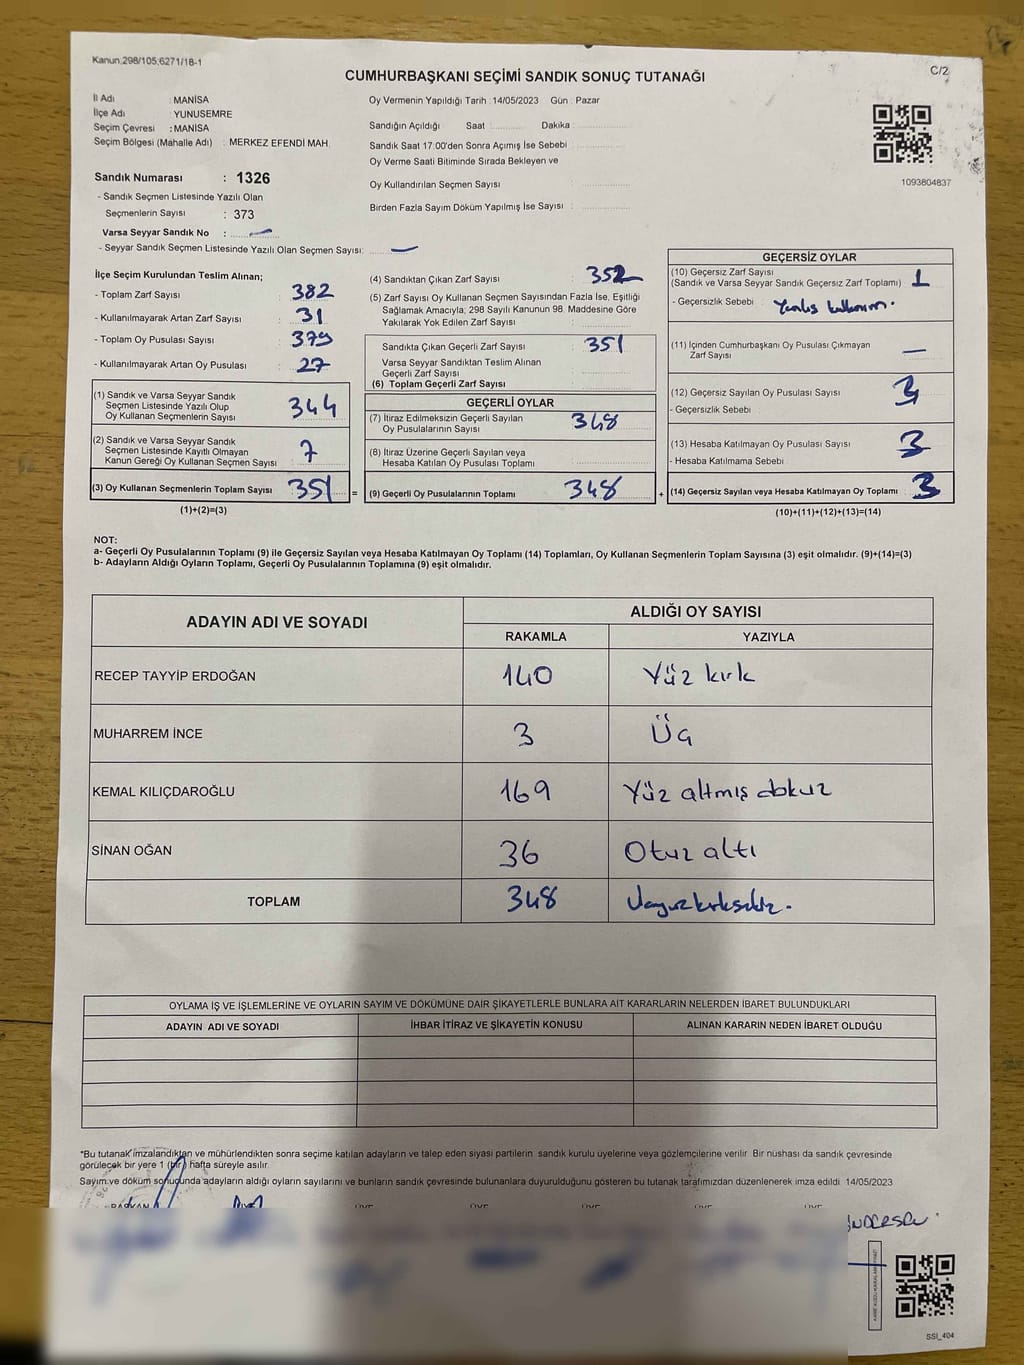 Kanun.298/105;6271/18-1
C/2
CUMHURBAŞKANI SEÇİMİ SANDIK SONUÇ TUTANAĞI
İl Adı : MANİSA
İlçe Adı : YUNUSEMRE
Seçim Çevresi : MANİSA
Seçim Bölgesi (Mahalle Adı) : MERKEZ EFENDİ MAH.
Oy Vermenin Yapıldığı Tarih : 14/05/2023 Gün : Pazar
Sandığın Açıldığı Saat Dakika
Sandık Saat 17:00'den Sonra Açımış İse Sebebi
Oy Verme Saati Bitiminde Sırada Bekleyen ve
Oy Kullandırılan Seçmen Sayısı :
Birden Fazla Sayım Döküm Yapılmış İse Sayısı :
1093804837
Sandık Numarası : 1326
- Sandık Seçmen Listesinde Yazılı Olan
Seçmenlerin Sayısı : 373
Varsa Seyyar Sandık No : —
- Seyyar Sandık Seçmen Listesinde Yazılı Olan Seçmen Sayısı: —
İlçe Seçim Kurulundan Teslim Alınan;
- Toplam Zarf Sayısı : 382
- Kullanılmayarak Artan Zarf Sayısı : 31
- Toplam Oy Pusulası Sayısı : 379
- Kullanılmayarak Artan Oy Pusulası : 27
(1) Sandık ve Varsa Seyyar Sandık
Seçmen Listesinde Yazılı Olup
Oy Kullanan Seçmenlerin Sayısı : 344
(2) Sandık ve Varsa Seyyar Sandık
Seçmen Listesinde Kayıtlı Olmayan
Kanun Gereği Oy Kullanan Seçmen Sayısı : 7
(3) Oy Kullanan Seçmenlerin Toplam Sayısı : 351 =
(1)+(2)=(3)
(4) Sandıktan Çıkan Zarf Sayısı : 352
(5) Zarf Sayısı Oy Kullanan Seçmen Sayısından Fazla İse, Eşitliği
Sağlamak Amacıyla; 298 Sayılı Kanunun 98. Maddesine Göre
Yakılarak Yok Edilen Zarf Sayısı :
Sandıkta Çıkan Geçerli Zarf Sayısı : 351
Varsa Seyyar Sandıktan Teslim Alınan
Geçerli Zarf Sayısı :
(6) Toplam Geçerli Zarf Sayısı :
GEÇERLİ OYLAR
(7) İtiraz Edilmeksizin Geçerli Sayılan
Oy Pusulalarının Sayısı : 348
(8) İtiraz Üzerine Geçerli Sayılan veya
Hesaba Katılan Oy Pusulası Toplamı :
(9) Geçerli Oy Pusulalarının Toplamı : 348 +
GEÇERSİZ OYLAR
(10) Geçersiz Zarf Sayısı
(Sandık ve Varsa Seyyar Sandık Geçersiz Zarf Toplamı) : 1
- Geçersizlik Sebebi : Yanlış kullanım.
(11) İçinden Cumhurbaşkanı Oy Pusulası Çıkmayan
Zarf Sayısı : —
(12) Geçersiz Sayılan Oy Pusulası Sayısı : 3
- Geçersizlik Sebebi
(13) Hesaba Katılmayan Oy Pusulası Sayısı : 3
- Hesaba Katılmama Sebebi
(14) Geçersiz Sayılan veya Hesaba Katılmayan Oy Toplamı : 3
(10)+(11)+(12)+(13)=(14)
NOT:
a- Geçerli Oy Pusulalarının Toplamı (9) ile Geçersiz Sayılan veya Hesaba Katılmayan Oy Toplamı (14) Toplamları, Oy Kullanan Seçmenlerin Toplam Sayısına (3) eşit olmalıdır. (9)+(14)=(3)
b- Adayların Aldığı Oyların Toplamı, Geçerli Oy Pusulalarının Toplamına (9) eşit olmalıdır.
ADAYIN ADI VE SOYADI ALDIĞI OY SAYISI
RAKAMLA YAZIYLA
RECEP TAYYİP ERDOĞAN 140 Yüz kırk
MUHARREM İNCE 3 Üç
KEMAL KILIÇDAROĞLU 169 Yüz altmış dokuz
SİNAN OĞAN 36 Otuz altı
TOPLAM 348 Üçyüzkırksekiz.
OYLAMA İŞ VE İŞLEMLERİNE VE OYLARIN SAYIM VE DÖKÜMÜNE DAİR ŞİKAYETLERLE BUNLARA AİT KARARLARIN NELERDEN İBARET BULUNDUKLARI
ADAYIN ADI VE SOYADI İHBAR İTİRAZ VE ŞİKAYETİN KONUSU ALINAN KARARIN NEDEN İBARET OLDUĞU
*Bu tutanak imzalandıktan ve mühürlendikten sonra seçime katılan adayların ve talep eden siyasi partilerin sandık kurulu üyelerine veya gözlemcilerine verilir. Bir nüshası da sandık çevresinde
görülecek bir yere 1 (bir) hafta süreyle asılır.
Sayım ve döküm sonucunda adayların aldığı oyların sayılarını ve bunların sandık çevresinde bulunanlara duyurulduğunu gösteren bu tutanak tarafımızdan düzenlenerek imza edildi. 14/05/2023
BAŞKAN ÜYE ÜYE ÜYE ÜYE ÜYE
SSI_404